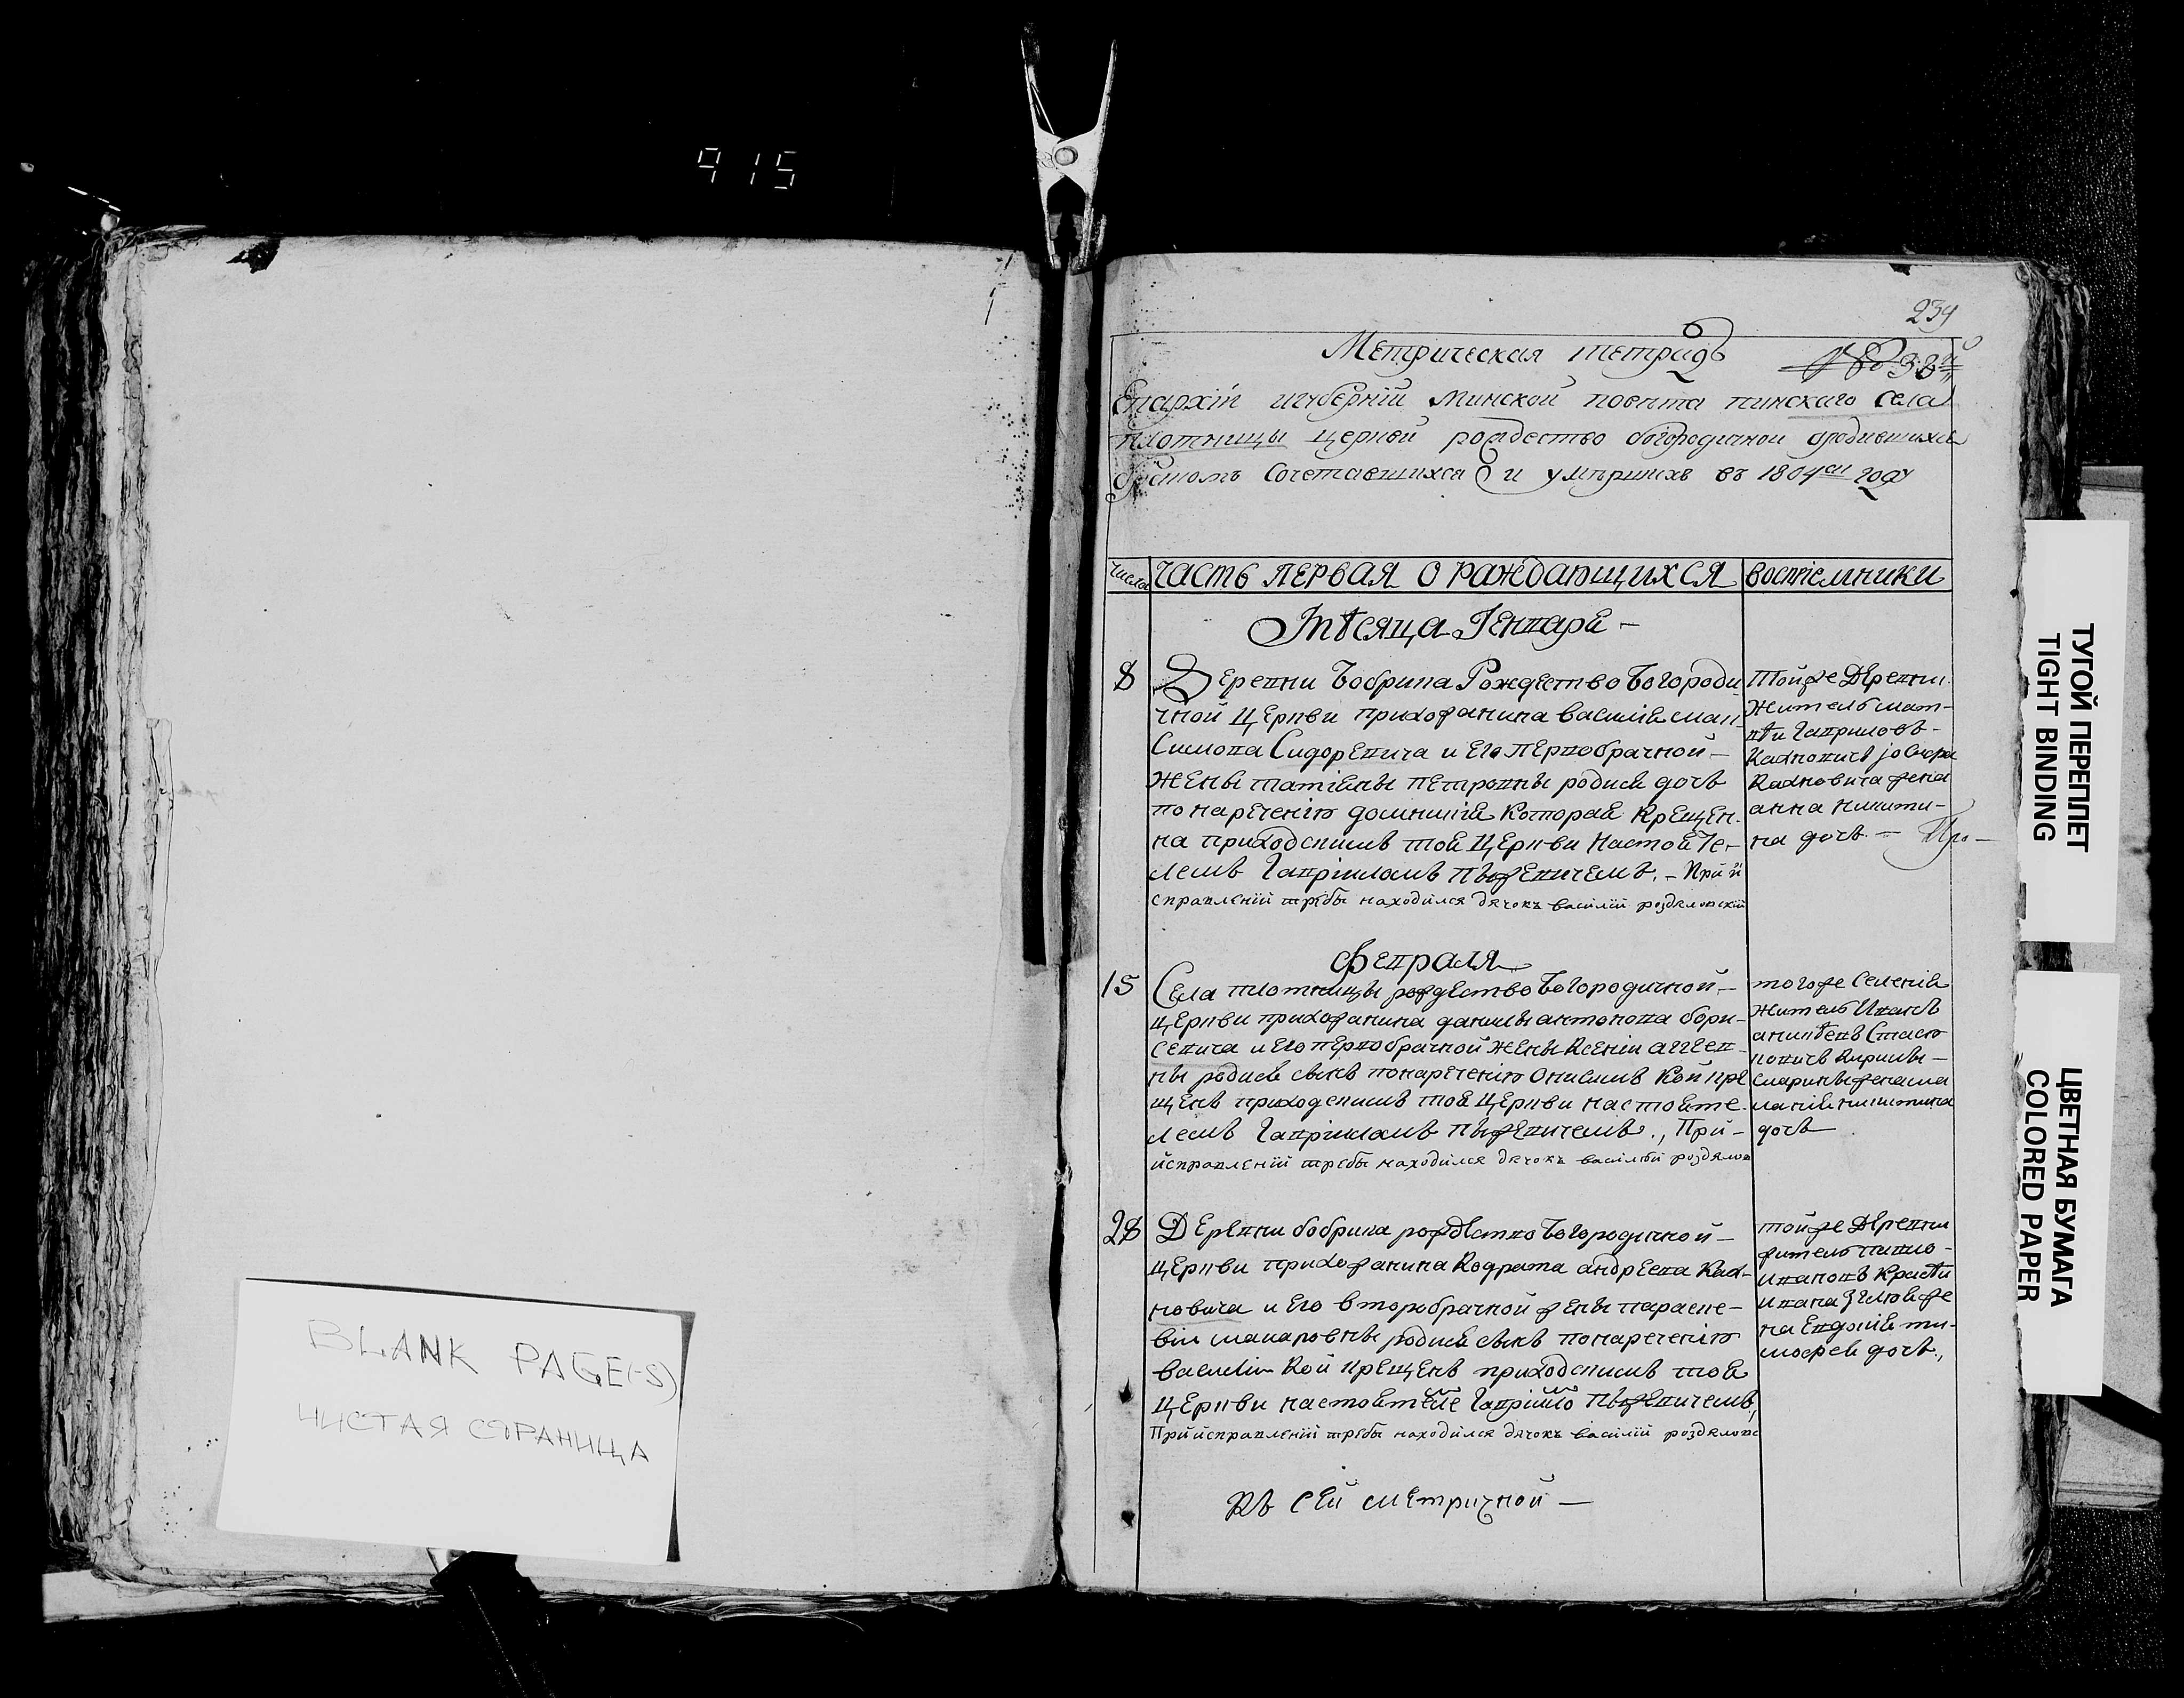 915
BLANK PAGE(-S)
ЧИСТАЯ СТРАНИЦА
239
Метрическая тетрадь № 38й
Епархіи игуберніи Минской повѣта пинскаго Села
плотницы церкви рождество богородичной ородившихся
бракомъ Сочетавшихся и умѣршихъ въ 1804м году
числа часть первая о раждающихся воспріемники
Мѣсяца Генваря –
8
Деревни Бобрика Рождество Богороди
чной Церкви прихожанина василія
Симона Сидоревича и его первобрачной –
жены татіены петровны родися дочь
по нареченію домникія которая крещен-
на приходскимъ тоя Церкви Настояте-
лемъ Гавріиломъ Пыжевичемъ. – При и
справленіи требы находился дячокъ василій роздяловскій
тойже Деревни
житель мат-
вѣй Гавриловъ –
Кахновичъ
Кахновича жена
анна никити-
на дочь –
февраля
15
Села плотницы рождество Богородичной –
Церкви прихожанина данилы антонова бори-
севича и его первобрачной жены Ксеніи
ны родися сынъ понареченію Онисимъ Кой кре
щенъ приходскимъ тоя Церкви настояте-
лемъ Гавріиломъ Пыжевичемъ., При –
исправленіи требы находился дячокъ василій роздялов
тогоже Селенія
житель Иванъ
Стасю
новичъ Кирилы –
никитина
дочь
28
Деревни бобрика рождество Богородичной –
Церкви прихожанина Кодрата андреева Ках-
новича и его второбрачной жены параске-
віи макаровны родися сынъ понареченію
василій Кой крещенъ приходскимъ тоя
Церкви настоятеле Гавріило Пыжевичемъ,
При исправленіи требы находился дячокъ василій роздялов
тойже Деревни
житель
Ивановъ
Ивана же
на Евдокія ти-
мофея дочь.,
Къ сей метричной –